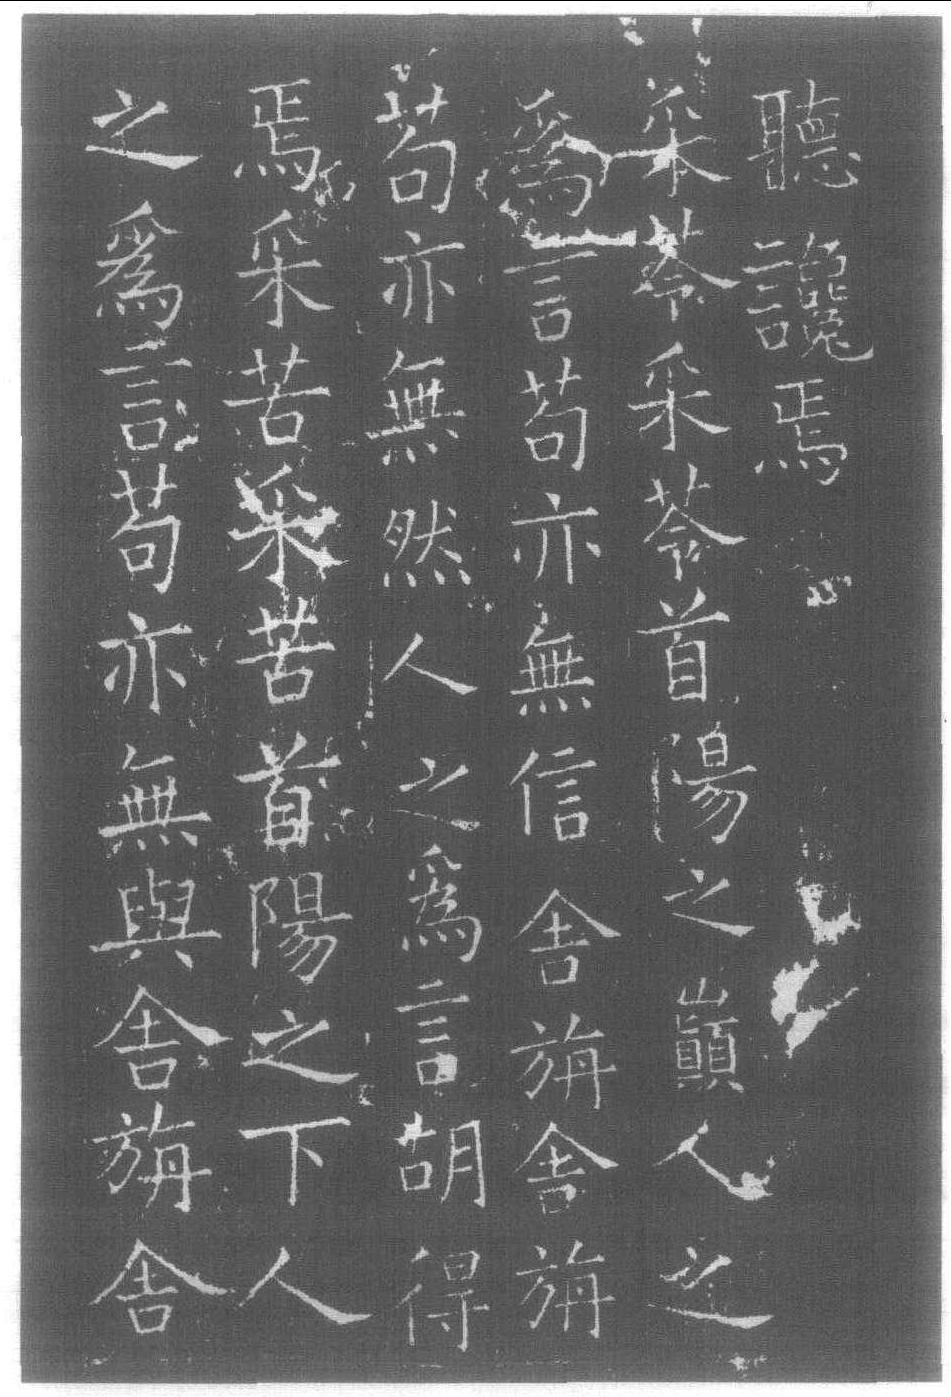 聽讒焉
采苓采苓首陽之巔人之
爲言苟亦無信舍旃舍旃
苟亦無然人之爲言胡得
焉采苦采苦首陽之下人
之爲言苟亦無與舍旃舍